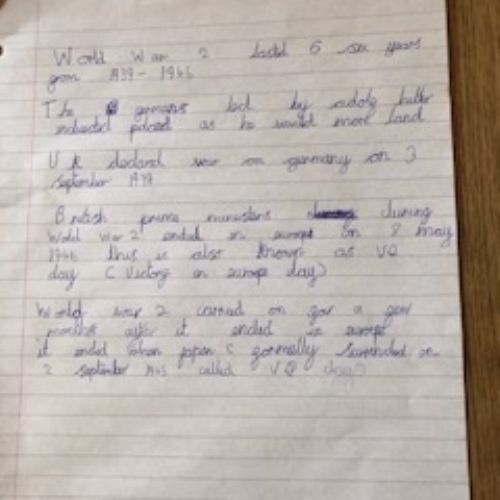 World War 2 lasted 6 six years
from 1939 - 1945
The germans led by adolf hitler
invaded poland as he wanted more land
UK declared war on germany on 3
september 1939
British prime ministers during
World War 2 ended in europe on 8 may
1945 this is also known as VE
day ( Victory in europe day)
World war 2 carried on for a few
months after it ended in europe
it ended when japan ( formally surrended on
2 september 1945 called VJ day)